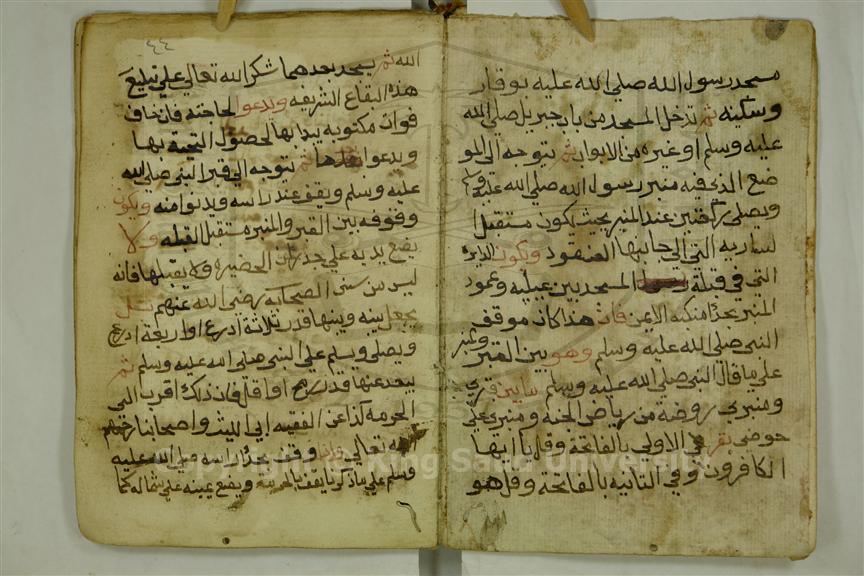 مسجد رسول الله صلى الله عليه بوقار
وسكينه ثم تدخل المسجد من باب جبريل صلى الله
عليه وسلم او غيره من الابواب ثم يتوجه الى المو
ضع الذي فيه منبر رسول الله صلى الله عليه وسلم
ويصلى ركعتين عند المنبر بحيث يكون مستقبلا
لساريه التي الى جانبها الصندوق وتكون الدايره
التي في قبلة المسجد بين عينيه وعمود
المنبر بحذا منكبه الايمن فان هذا كان موقف
النبي صلى الله عليه وسلم وهو بين القبر والمنبر
على ما قال النبي صلى الله عليه وسلم ما بين قبري
ومنبري روضة من رياض الجنة ومنبري على
حوضي يقرء في الاولى بالفاتحة وقل يا ايها
الكافرون وفي الثانيه بالفاتحة وقل هو
٤٤
الله ثم يسجد بعدهما شكرا لله تعالى على تبليغ
هذه البقاع الشريفه ويدعوا لحاجته فان خاف
فوات مكتوبة يبدا بها لحصول التحية بها
ويدعوا بعدها ثم يتوجه الى قبر النبي صلى الله
عليه وسلم ويقف عند راسه ويدنوا منه ويكون
وقوفه بين القبر والمنبر مستقبل القبله ولا
يضع يديه على جدران الحضيره ولا يقبلها فانه
ليس من سنن الصحابه رضى الله عنهم بل
يجعل بينه وبينها قدر ثلاثة ادرع او اربعة ادرع
ويصلى ويسلم على النبي صلى الله عليه وسلم ثم
يبعد عنها قدر رمح او اقل فان ذلك اقرب الى
الحرمه كذا عن الفقيه ابي الليث واصحابنا رحمهم
الله تعالى وقف بحذا راسه صلى الله عليه
وسلم على ما ذكرنا يقف ويضع يمينه على شماله كما
Copyright © King Saud University